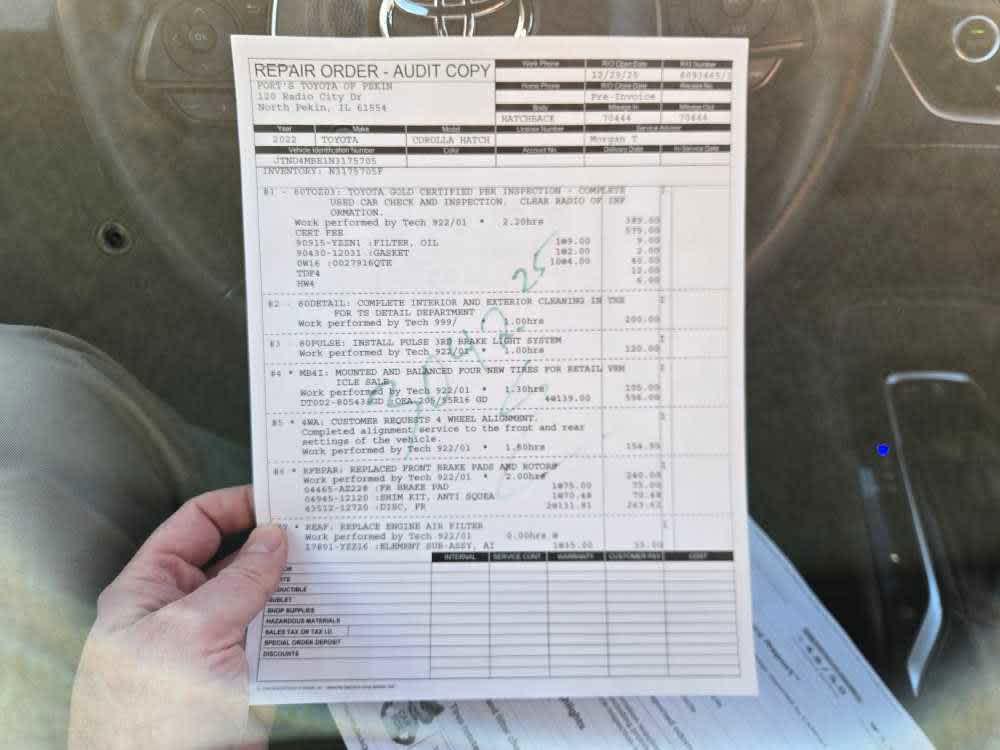 OK
REPAIR ORDER - AUDIT COPY
PORT'S TOYOTA OF PEKIN
120 Radio City Dr
North Pekin, IL 61554
Work Phone R/O Open Date R/O Number
12/29/25
Home Phone R/O Close Date
Pre-Invoice
Body Mileage In Mileage Out
HATCHBACK 70444 70444
Year Make Model License Number Service Advisor
2022 TOYOTA COROLLA HATCH Morgan T
Vehicle Identification Number Color Account No. Delivery Date In-Service Date
JTND4MBE1N3175705
INVENTORY: N3175705F
#1 - 80TOZ03: TOYOTA GOLD CERTIFIED PER INSPECTION - COMPLETE
USED CAR CHECK AND INSPECTION. CLEAR RADIO OF INF
ORMATION.
Work performed by Tech 922/01 * 2.20hrs 389.00
CERT FEE 575.00
90915-YZZN1 :FILTER, OIL 1@9.00 9.00
90430-12031 :GASKET 1@2.00 2.00
0W16 :0027916QTE 10@4.00 40.00
TDF4 12.00
HW4 6.00
3,042.25
#2 - 80DETAIL: COMPLETE INTERIOR AND EXTERIOR CLEANING IN THE
FOR TS DETAIL DEPARTMENT
Work performed by Tech 999/ * 1.00hrs 200.00
#3 80PULSE: INSTALL PULSE 3RD BRAKE LIGHT SYSTEM
Work performed by Tech 922/01 * 1.00hrs 120.00
#4 * MB4I: MOUNTED AND BALANCED FOUR NEW TIRES FOR RETAIL VEH
ICLE SALE
Work performed by Tech 922/01 * 1.30hrs 105.00
4@139.00 556.00
#5 * 4WA: CUSTOMER REQUESTS 4 WHEEL ALIGNMENT.
Completed alignment service to the front and rear
settings of the vehicle.
Work performed by Tech 922/01 * 1.80hrs 154.95
#6 * RFBPAR: REPLACED FRONT BRAKE PADS AND ROTORS
Work performed by Tech 922/01 * 2.00hrs 240.00
04465-AZ228 :FR BRAKE PAD 1@75.00 75.00
04945-12120 :SHIM KIT, ANTI SQUEA 1@70.48 70.48
43512-12720 :DISC, FR 2@131.81 263.62
* REAF: REPLACE ENGINE AIR FILTER
Work performed by Tech 922/01 0.00hrs
17801-YZZ16 :ELEMENT SUB-ASSY, AI 1@35.00 35.00
INTERNAL SERVICE CONT WARRANTY CUSTOMER PAY COST
SHOP SUPPLIES
HAZARDOUS MATERIALS
SALES TAX OR TAX I.D.
SPECIAL ORDER DEPOSIT
DISCOUNTS